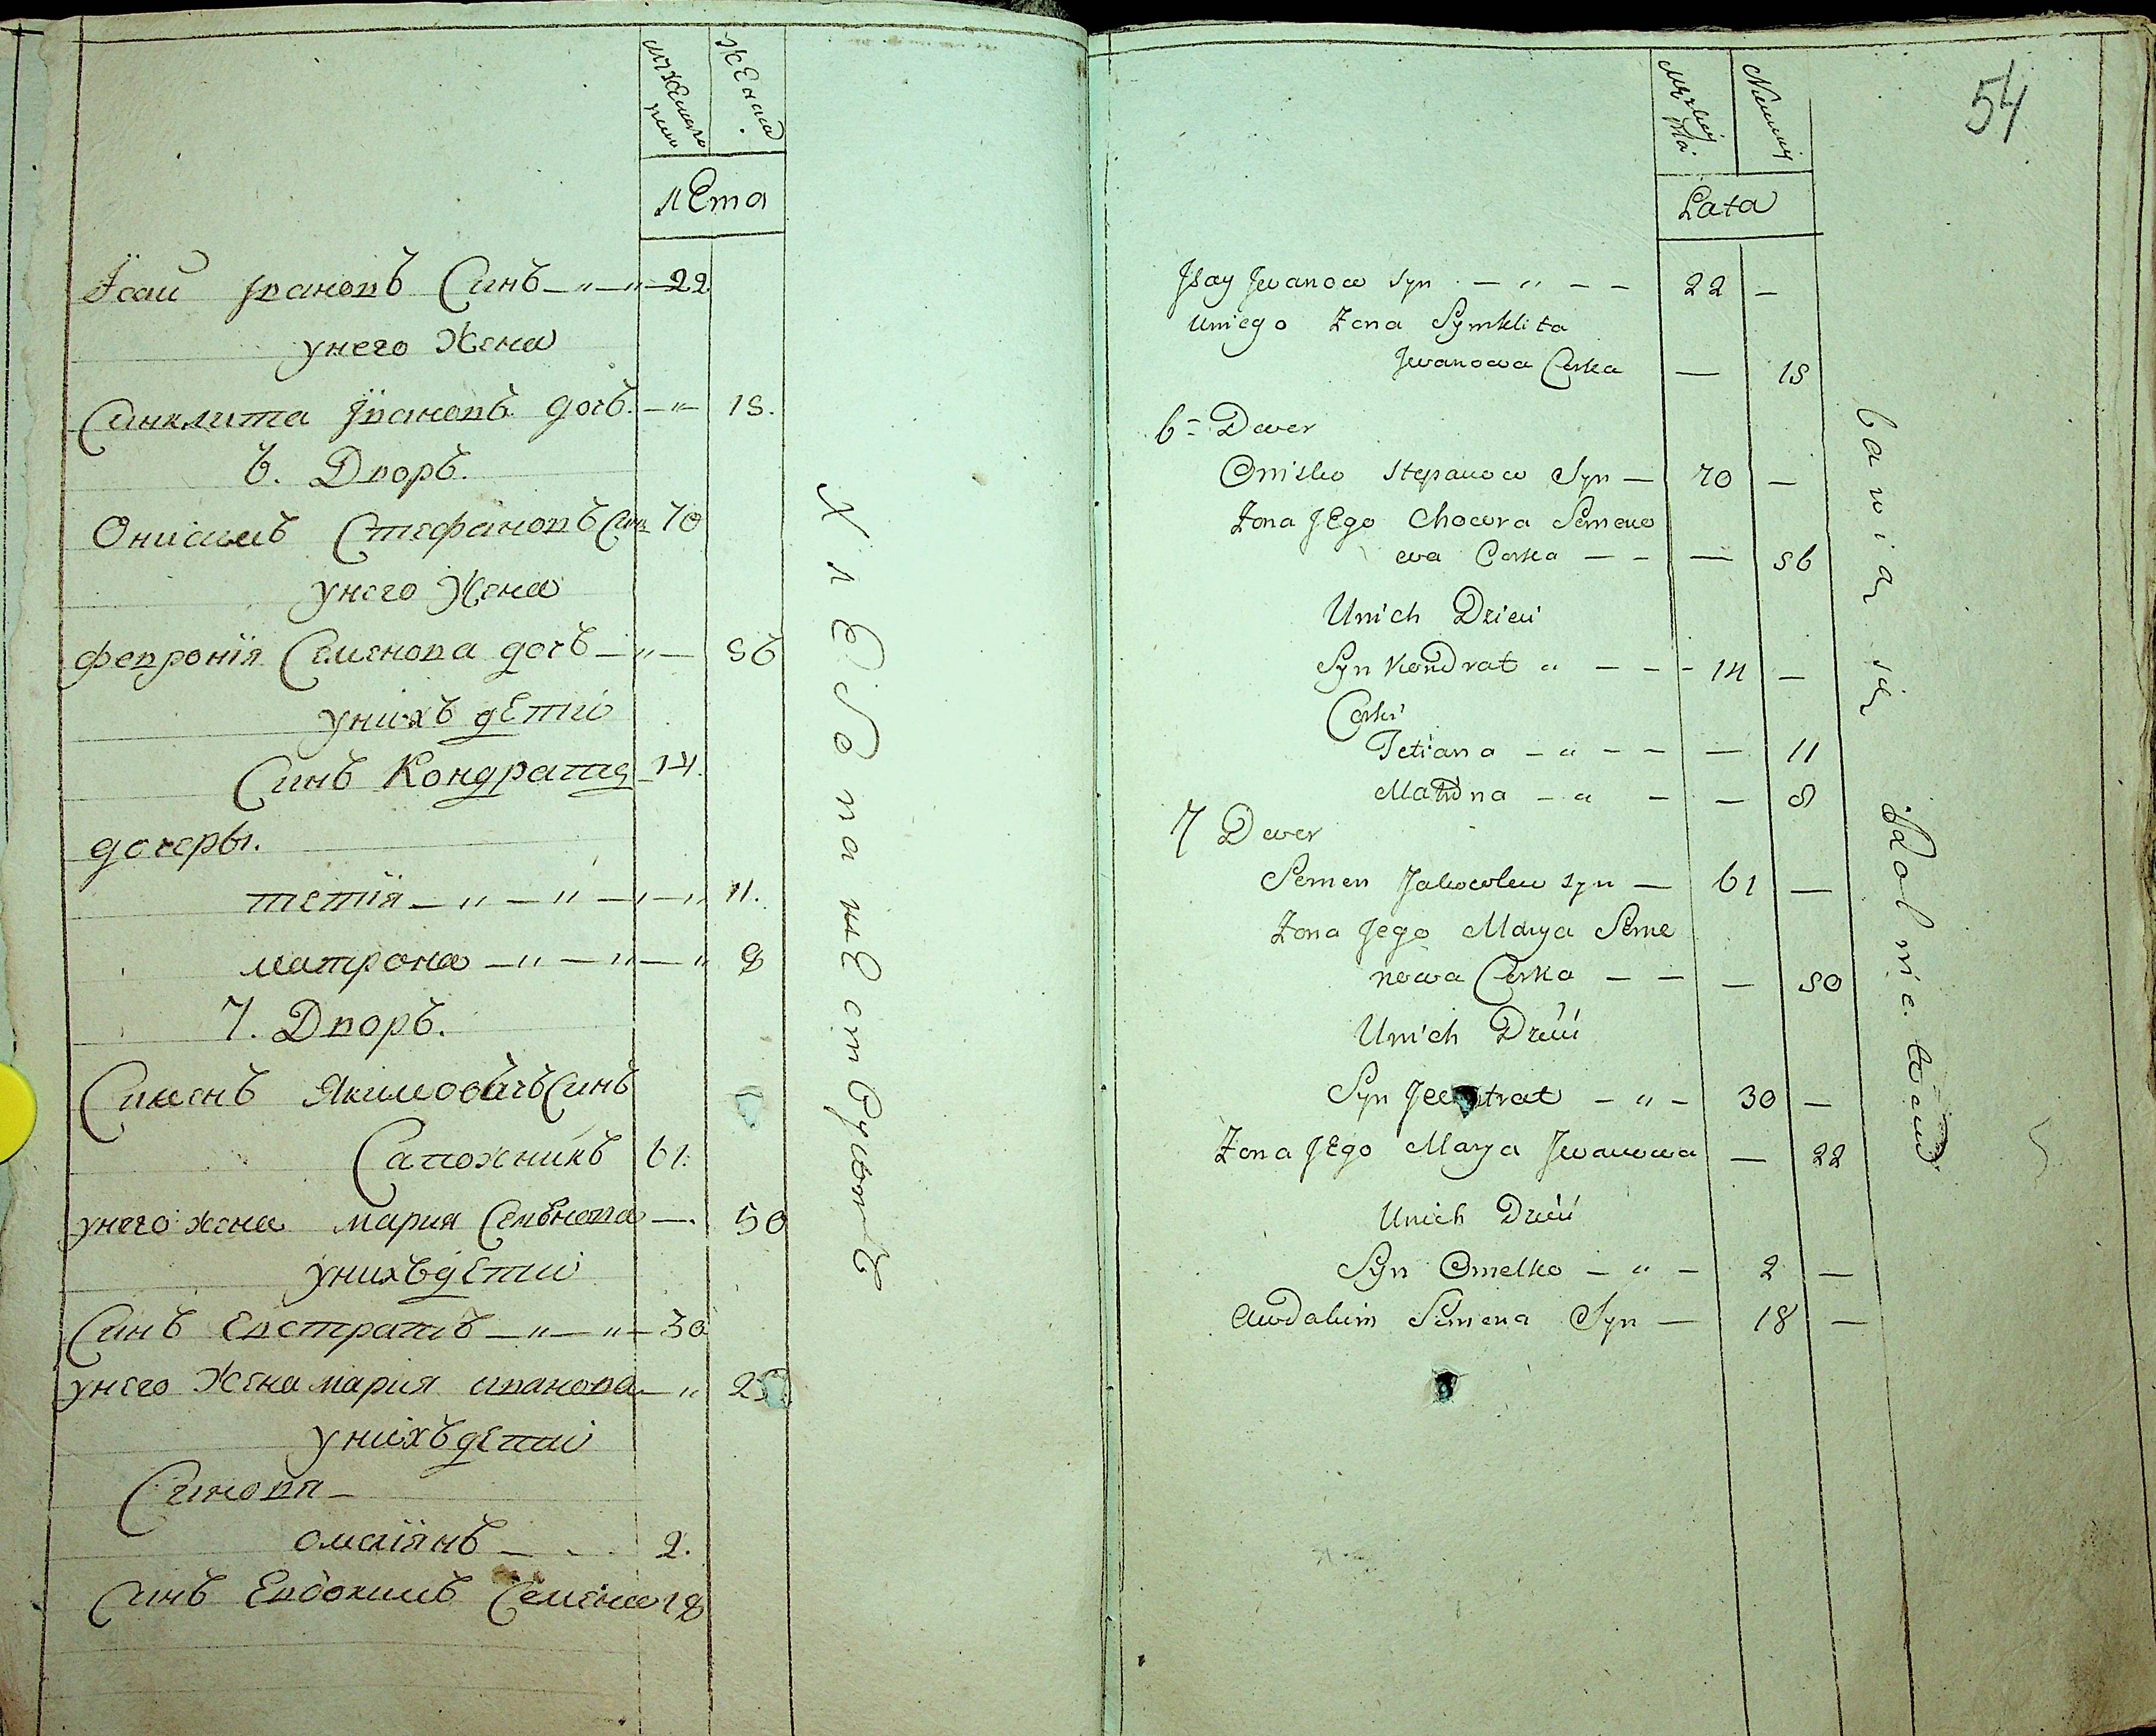 Женска
лЕта
Їсай Јвановъ Синъ — „ — „ — 22
унего Жена
Синклита Јвановъ дочъ. — „ — 18.
6. Дворъ.
Онисимъ Стефановъ Син 70
унего Жена
Февронїя Семенова дочъ — „ — 56
унихъ дЕти
Синъ Кондратъ 14.
дочеры.
тетїя — „ — „ — „ — „ 11.
матрона — „ — „ — „ 8
7. Дворъ.
Симєнъ Якимовичъ Синъ
Сапожникъ 61.
унего жена мария Семенова — . 50
унихъ дЕти
Синъ Евстратъ — „ — „ — 30
унего Жена мария иванова — „
унихъ дЕти
Синовя —
омелїянъ — 2.
Синъ Евдокимъ Семена 18
хлЕбопашЕст
54
Męzkiej
Lata
Jsay Jwanow syn — „ — — 22 —
Uniego Zona Symklita
Jwanowa Corka — 18
6 = Dwor
Onisko Stepanow Syn — 70 —
Zona JEgo Chowra Semeno
wa Corka — — — 56
Unich Dzieci
Syn Kondrat „ — — — 14 —
Corki
Tetiana — „ — — — 11
Matrona — „ — — 8
7 Dwor
Semen Jakowlew syn — 61 —
Zona Jego Marya Seme
nowa Corka — — — 50
Unich Dzieci
Syn — „ — 30 —
Zona JEgo Marya Jwanowa — 22
Unich Dzieci
Syn Omelko — „ — 2 —
Awdakim Semena Syn — 18 —
bawią się Rolnic